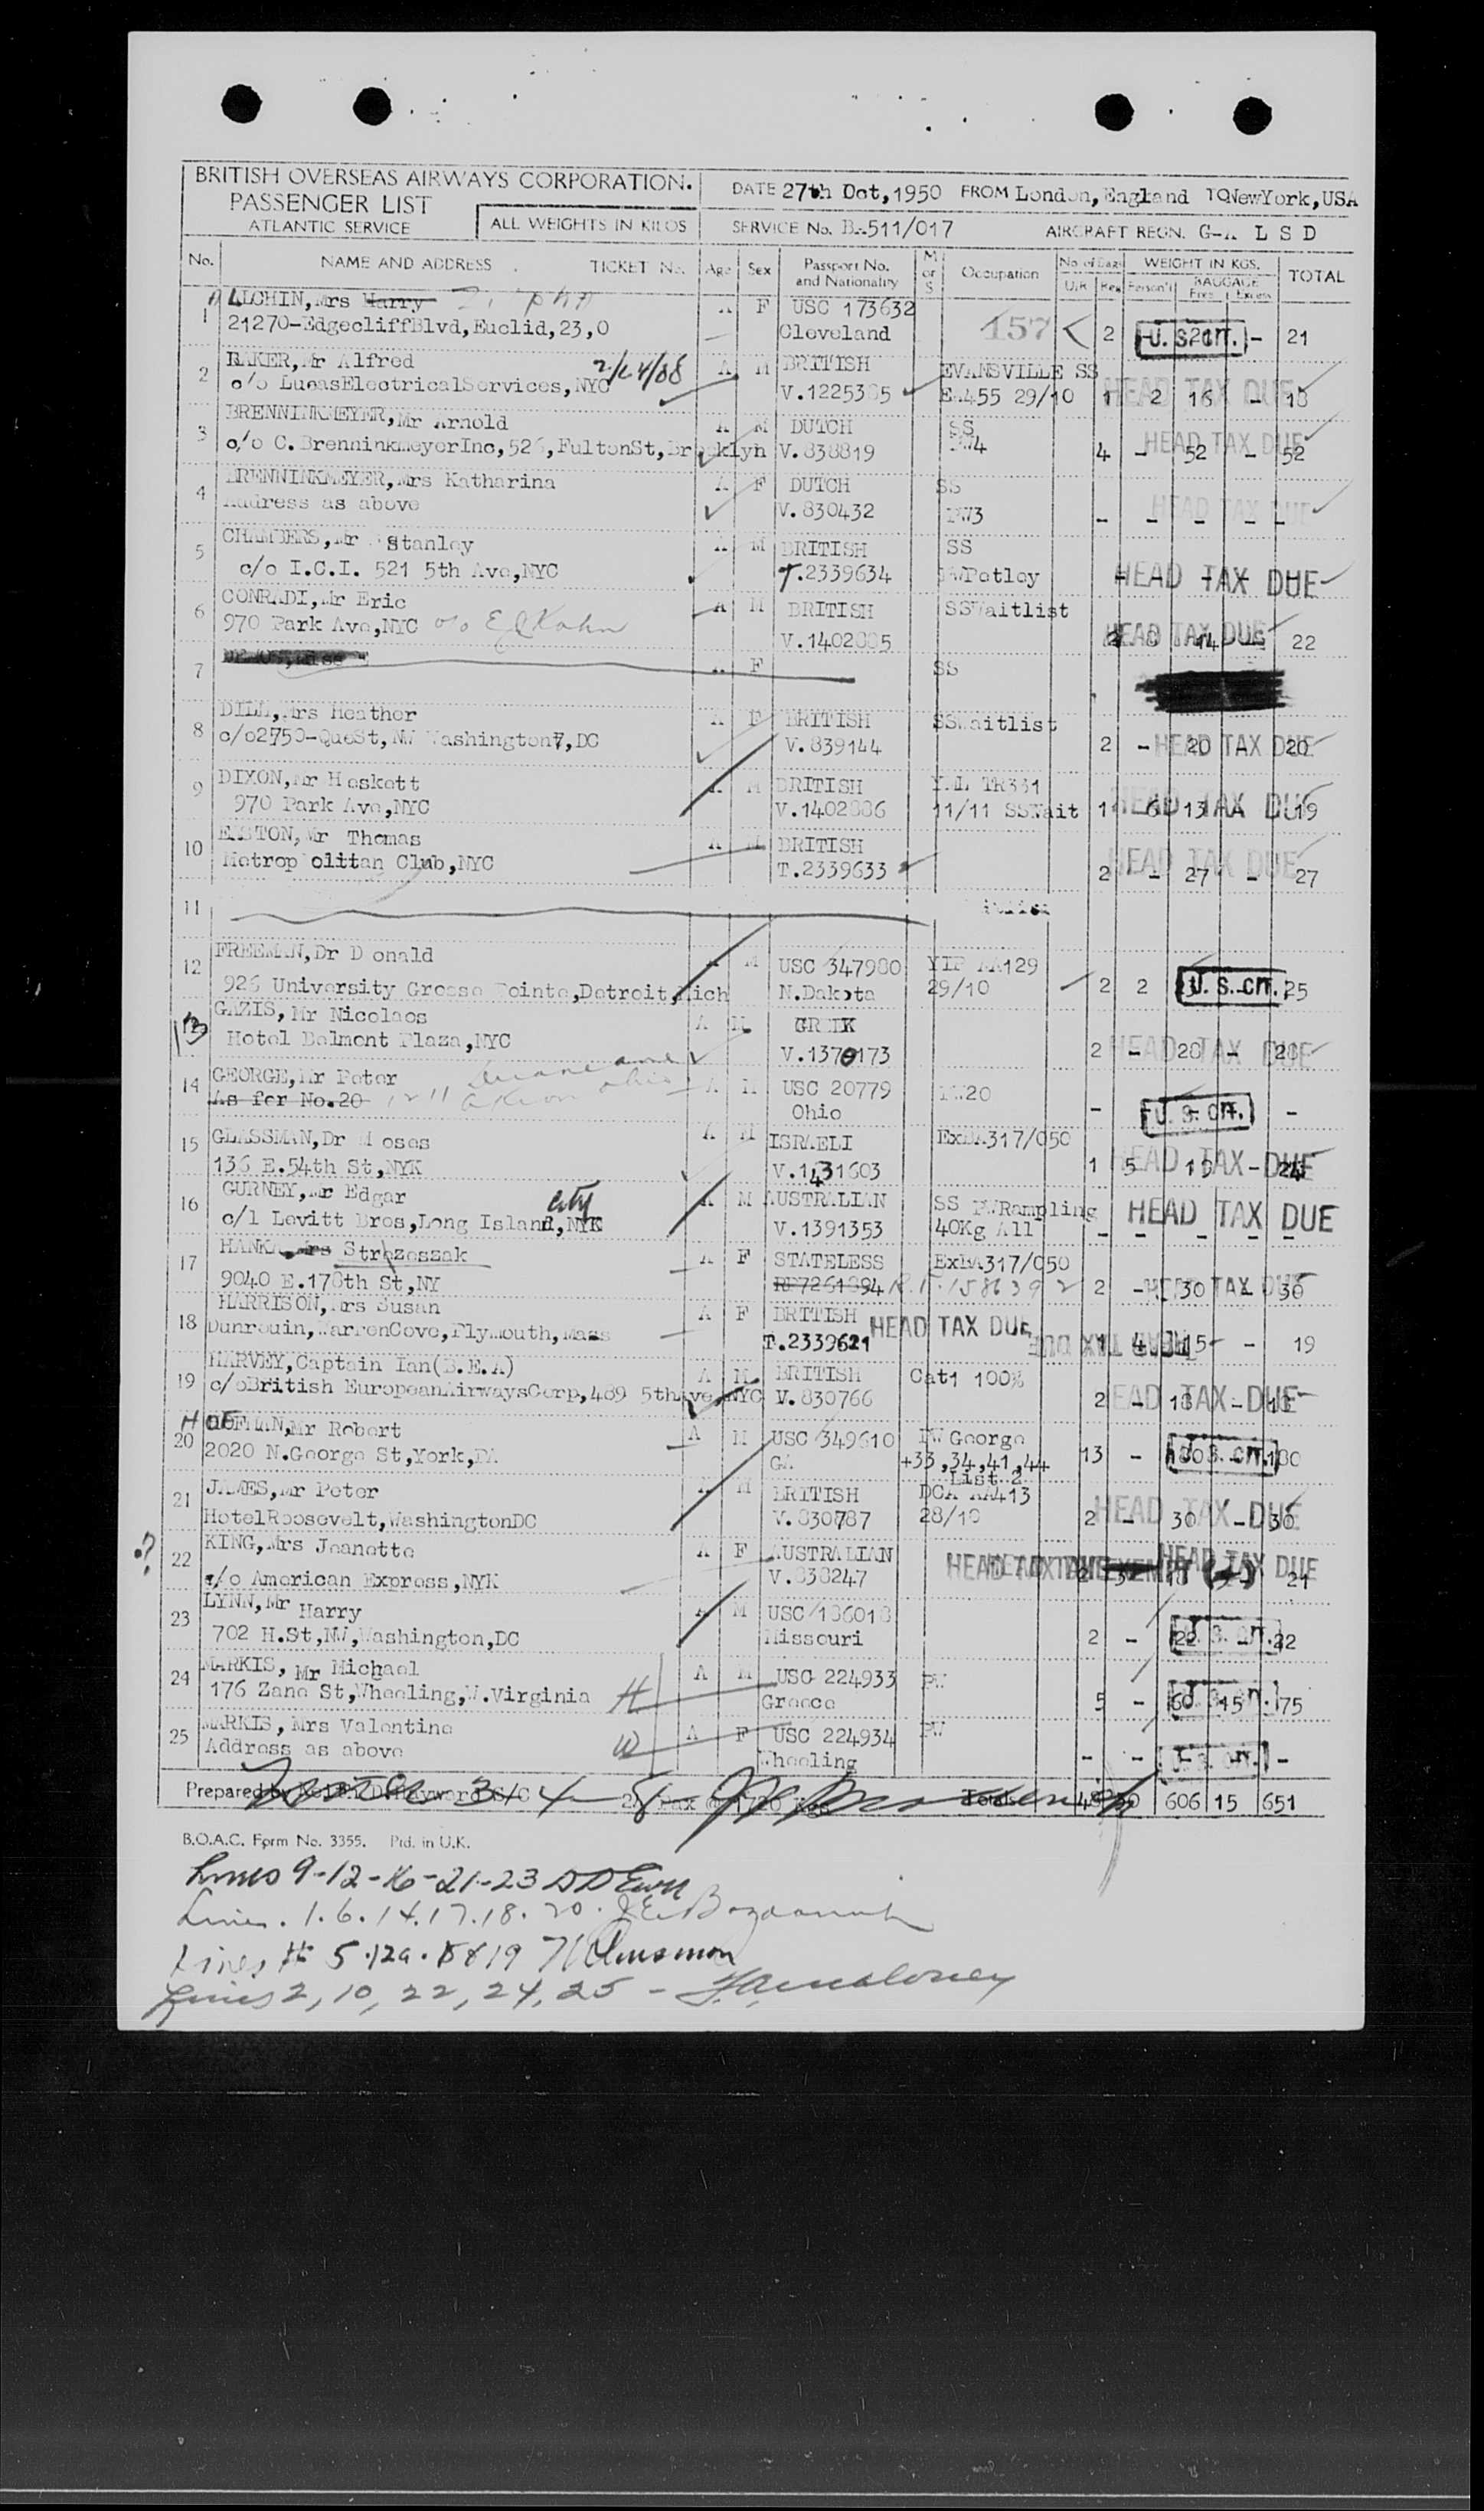 BRITISH OVERSEAS AIRWAYS CORPORATION.
PASSENGER LIST
ATLANTIC SERVICE
ALL WEIGHTS IN KILOS
DATE 27th Oct,1950 FROM London,England TO NewYork,USA
SERVICE No. BA511/017 AIRCRAFT REGN. G-A L S D
No. NAME AND ADDRESS TICKET No. Age Sex Passport No. and Nationality M or S Occupation No of Bags WEIGHT IN KGS. TOTAL
U/R Reg Person'l BAGGAGE Free Excess
1 ALCHIN,Mrs Harry A F USC 173632
21270-EdgecliffBlvd,Euclid,23,O Cleveland 157 2 U.S. CIT. - 21
2 BAKER,Mr Alfred A M BRITISH EVANSVILLE SS
c/o LucasElectricalServices,NYC V.1225385 EA455 29/10 1 2 16 - 18 HEAD TAX DUE
3 BRENNINKMEYER,Mr Arnold A M DUTCH SS
c/o C.BrenninkmeyerInc,526,FultonSt,Brooklyn V.838819 PW4 4 - 52 - 52 HEAD TAX DUE
4 BRENNINKMEYER,Mrs Katharina A F DUTCH SS
Address as above V.830432 PW3 - - - - - HEAD TAX DUE
5 CHAMBERS,Mr Stanley A M BRITISH SS
c/o I.C.I. 521 5th Ave,NYC T.2339634 PWPotley HEAD TAX DUE
6 CONRADI,Mr Eric A M BRITISH SSWaitlist
970 Park Ave,NYC c/o E J Kahn V.1402885 2 8 14 - 22 HEAD TAX DUE
7 A F SS
8 DILL,Mrs Heather A F BRITISH SSWaitlist
c/o2750-QueSt,NW Washington7,DC V.839144 2 - 20 20 HEAD TAX DUE
9 DIXON,Mr Heskett A M BRITISH YUL TR331
970 Park Ave,NYC V.1402886 11/11 SSWait 1 6 13 - 19 HEAD TAX DUE
10 EASTON,Mr Thomas A M BRITISH
Metropolitan Club,NYC T.2339633 2 - 27 - 27 HEAD TAX DUE
11
12 FREEMAN,Dr Donald A M USC 347980 YIP AA129
926 University Grosse Pointe,Detroit,Mich N.Dakota 29/10 2 2 U.S. CIT. 25
13 GAZIS,Mr Nicolaos A M GREEK
Hotel Belmont Plaza,NYC V.1370173 2 - 28 - 28 HEAD TAX DUE
14 GEORGE,Mr Peter A M USC 20779 PW20
As for No.20 1211 Duane ave Akron Ohio Ohio - U.S. CIT. -
15 GLASSMAN,Dr Moses A M ISRAELI ExBA317/050
136 E.54th St,NYK V.1431603 1 5 19 - 24 HEAD TAX DUE
16 GURNEY,Mr Edgar A M AUSTRALIAN SS PWRampling
c/l Levitt Bros,Long Island,NYK City V.1391353 40Kg All - - - - - HEAD TAX DUE
17 HANKA,Mrs Strzeszak A F STATELESS ExBA317/050
9040 E.178th St,NY RE7261894 R.P.1586392 2 - 30 - 30 HEAD TAX DUE
18 HARRISON,Mrs Susan A F BRITISH
Dunrouin,WarrenCove,Plymouth,Mass T.2339621 HEAD TAX DUE 1 4 15 - 19
19 HARVEY,Captain Ian(B.E.A) A M BRITISH Cat1 100%
c/oBritish EuropeanAirwaysCorp,489 5thAve,NYC V.830766 2 - 18 - 18 HEAD TAX DUE
20 HOFFMAN,Mr Robert A M USC 349610 PW George
2020 N.George St,York,PA GA +33,34,41,44 13 - U.S. CIT. 180
List 2
21 JAMES,Mr Peter A M BRITISH DCA AA413
HotelRoosevelt,WashingtonDC V.830787 28/10 2 - 30 - 30 HEAD TAX DUE
? 22 KING,Mrs Jeanette A F AUSTRALIAN
c/o American Express,NYK V.838247 2 3 18 - 21 HEAD TAX DUE
23 LYNN,Mr Harry A M USC 186018
702 H.St,NW,Washington,DC Missouri 2 - 22 - 22 U.S. CIT.
24 MARKIS,Mr Michael H A M USC 224933 PW
176 Zane St,Wheeling,W.Virginia Greece 5 - 60 15 75 U.S. CIT.
25 MARKIS,Mrs Valentine W A F USC 224934 PW
Address as above Wheeling - - U.S. CIT. -
Prepared by Total 606 15 651
B.O.A.C. Form No. 3355. Ptd. in U.K.
Lines 9-12-16-21-23
Lines. 1.6.14.17.18.20.
Lines # 5.12a.
Lines 2, 10, 22, 24, 25 - Maloney